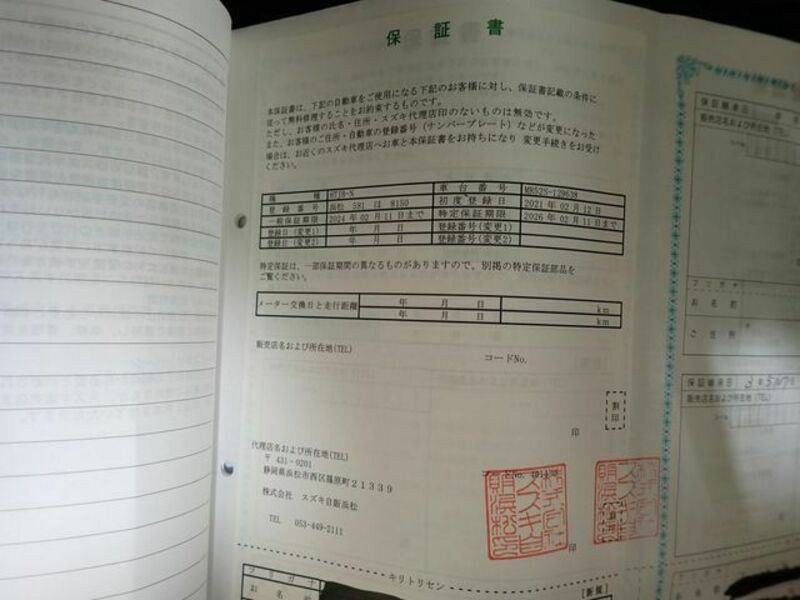 保証書
本保証書は、下記の自動車をご使用になる下記のお客様に対し、保証書記載の条件に
従って無料修理することをお約束するものです。
ただし、お客様の氏名・住所・スズキ代理店印のないものは無効です。
また、お客様のご住所・自動車の登録番号（ナンバープレート）などが変更になった
場合は、お近くのスズキ代理店へお車と本保証書をお持ちになり 変更手続きをお受け
ください。
機種 HT1B-N 車台番号 MR52S-129638
登録番号 浜松 581 は 8150 初度登録日 2021 年 02 月 12 日
一般保証期限 2024 年 02 月 11 日まで 特定保証期限 2026 年 02 月 11 日まで
登録日(変更1) 年 月 日 登録番号(変更1)
登録日(変更2) 年 月 日 登録番号(変更2)
特定保証は、一部保証期間の異なるものがありますので、別掲の特定保証部品を
ご覧ください。
メーター交換日と走行距離 年 月 日 km
年 月 日 km
販売店名および所在地(TEL) コードNo.
割印
印
代理店名および所在地(TEL)
〒 431-0201
静岡県浜松市西区篠原町２１３３９
株式会社 スズキ自販浜松
TEL 053-449-2111
印
キリトリセン
フリガナ
お名前
[新規]
保証継承日
販売店名および所在地(TEL)
フリガナ
お名前
ご住所
保証継承日
販売店名および所在地(TEL)
フリガナ